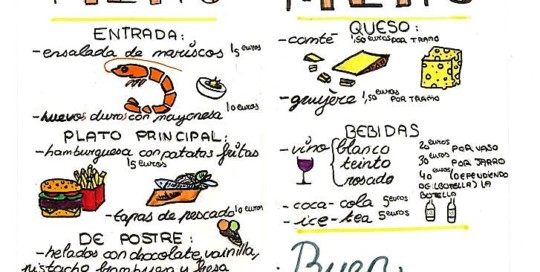 MENU
ENTRADA:
-ensalada de mariscos 15 euros
-huevos duros con mayonesa 10 euros
PLATO PRINCIPAL:
-hamburguesa con patatas fritas
15 euros
-tapas de pescado 10 euros
DE POSTRE:
-helados con chocolate, vainilla,
pistacho, frambuesa y fresa
MENU
QUESO:
-comté 1,50 euros POR TRAMO
-gruyère 1,50 euros POR TRAMO
BEBIDAS
-vino blanco 20 euros POR VASO
tinto 30 euros POR JARRO
rosado 40 euros (DEPENDIENDO
DE (BOTELLA) LA
BOTELLA
-coca-cola 5 euros
-ice-tea 5 euros
Buen